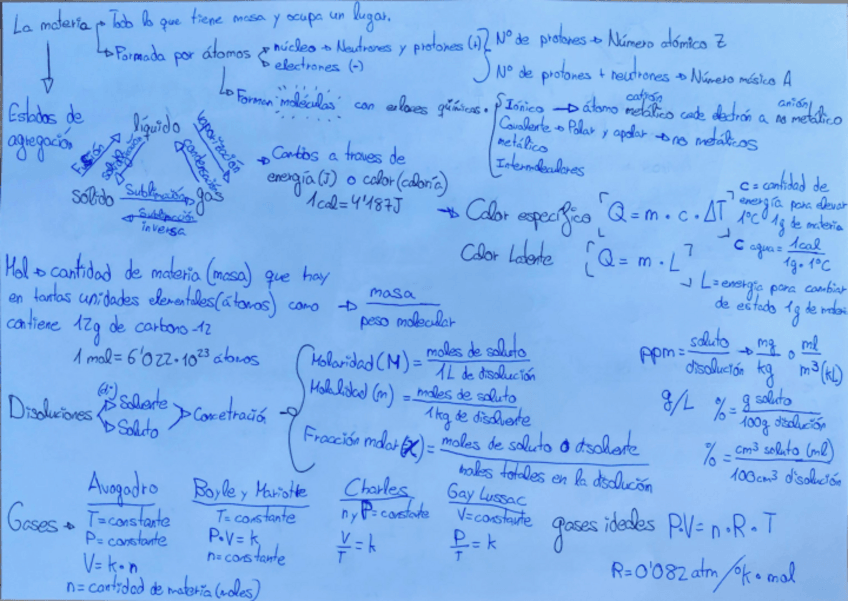 La materia → Todo lo que tiene masa y ocupa un lugar.
Formada por átomos
núcleo → Neutrones y protones (+)
electrones (-)
Nº de protones → Número atómico Z
Nº de protones + neutrones → Número másico A
Forman moléculas con enlaces químicos.
Iónico → átomo metálico cede electrón a no metálico
catión
anión
Covalente → Polar y apolar → no metálicos
metálico
Intermoleculares
Estados de
agregación
líquido
sólido
gas
Fusión
Solidificación
vaporización
condensación
Sublimación
Sublimación
inversa
→ Cambios a traves de
energía (J) o calor (caloría)
1cal = 4'187J
→ Calor específico Q = m · c · ΔT
c = cantidad de
energía para elevar
1ºC 1g de materia
c agua = 1cal / 1g · 1ºC
Calor Latente Q = m · L
L = energía para cambiar
de estado 1g de materia
Mol → cantidad de materia (masa) que hay
en tantas unidades elementales (átomos) como
contiene 12g de carbono-12
→ masa / peso molecular
1 mol = 6'022 · 10²³ átomos
Disoluciones
(di-)
Solvente
Soluto
Concetración →
Molaridad (M) = moles de soluto / 1L de disolución
Molalidad (m) = moles de soluto / 1kg de disolvente
Fracción molar (χ) = moles de soluto o disolvente / moles totales en la disolución
ppm = soluto / disolución → mg / kg o ml / m³ (kL)
g/L % = g soluto / 100g disolución
% = cm³ soluto (ml) / 100cm³ disolución
Gases →
Avogadro
T = constante
P = constante
V = k · n
n = cantidad de materia (moles)
Boyle y Mariotte
T = constante
P · V = k
n = constante
Charles
n y P = constante
V/T = k
Gay Lussac
V = constante
P/T = k
gases ideales P·V = n · R · T
R = 0'082 atm / ºk · mol